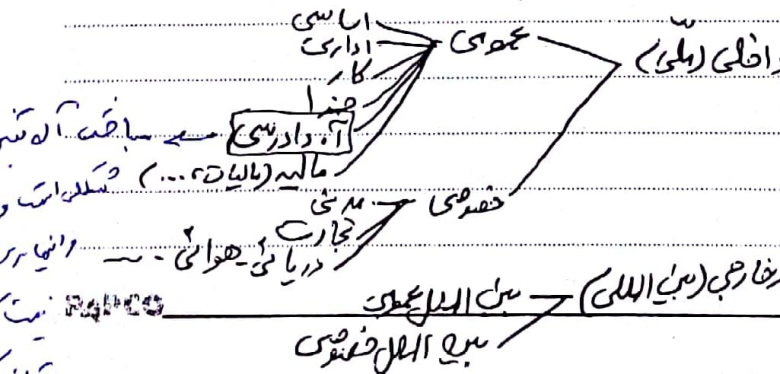 داخلی (ملّی)
عمومی
اساسی
اداری
کار
جزا
آ.دادرسی
مالیه (مالیات،...)
خصوصی
مدنی
تجارت
دریائی-هوائی
خارجی (بین المللی)
بین الملل عمومی
بین الملل خصوصی
مباحث آ
است و
نیست
PAPCO